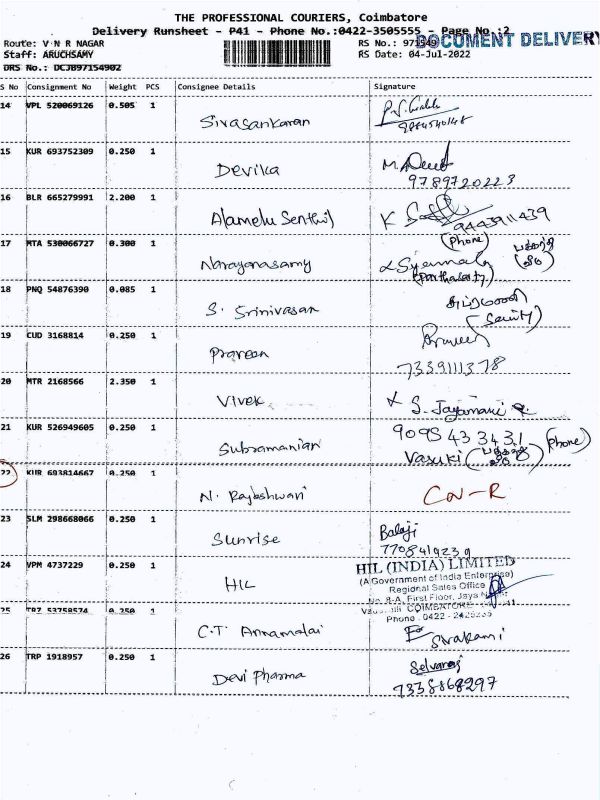 THE PROFESSIONAL COURIERS, Coimbatore
Delivery Runsheet - P41 - Phone No.:0422-3505555 - Page No.:2
DOCUMENT DELIVERY
Route: V N R NAGAR
Staff: ARUCHSAMY
RS Date: 04-Jul-2022
DRS No.: DCJB97154902
S No Consignment No Weight PCS Consignee Details Signature
14 VPL 520069126 0.505 1 Sivasankaran
15 KUR 693752309 0.250 1 Devika
9789720223
16 BLR 665279991 2.200 1 Alamelu Senthil K
9443911439
(Phone)
17 MTA 530066727 0.300 1 Narayanasamy
18 PNQ 54876390 0.085 1 S. Srinivasan
19 CUD 3168814 0.250 1 Praveen
7339111378
20 MTR 2168566 2.350 1 Vivek S. Jayamani
21 KUR 526949605 0.250 1 Subramanian 9095433431 (Phone)
Vasuki
22 KUR 693814667 0.250 1 N. Rajeshwari CN-R
23 SLM 298668066 0.250 1 Sunrise Balaji
7708419239
24 VPM 4737229 0.250 1 HIL HIL (INDIA) LIMITED
(A Government of India Enterprise)
Regional Sales Office
No. 8-A, First Floor, Jaya
COIMBATORE
Phone: 0422 -
25 TRZ 53758574 0.250 1 C.T. Annamalai Sivakami
26 TRP 1918957 0.250 1 Devi Pharma Selvaraj
7338868297